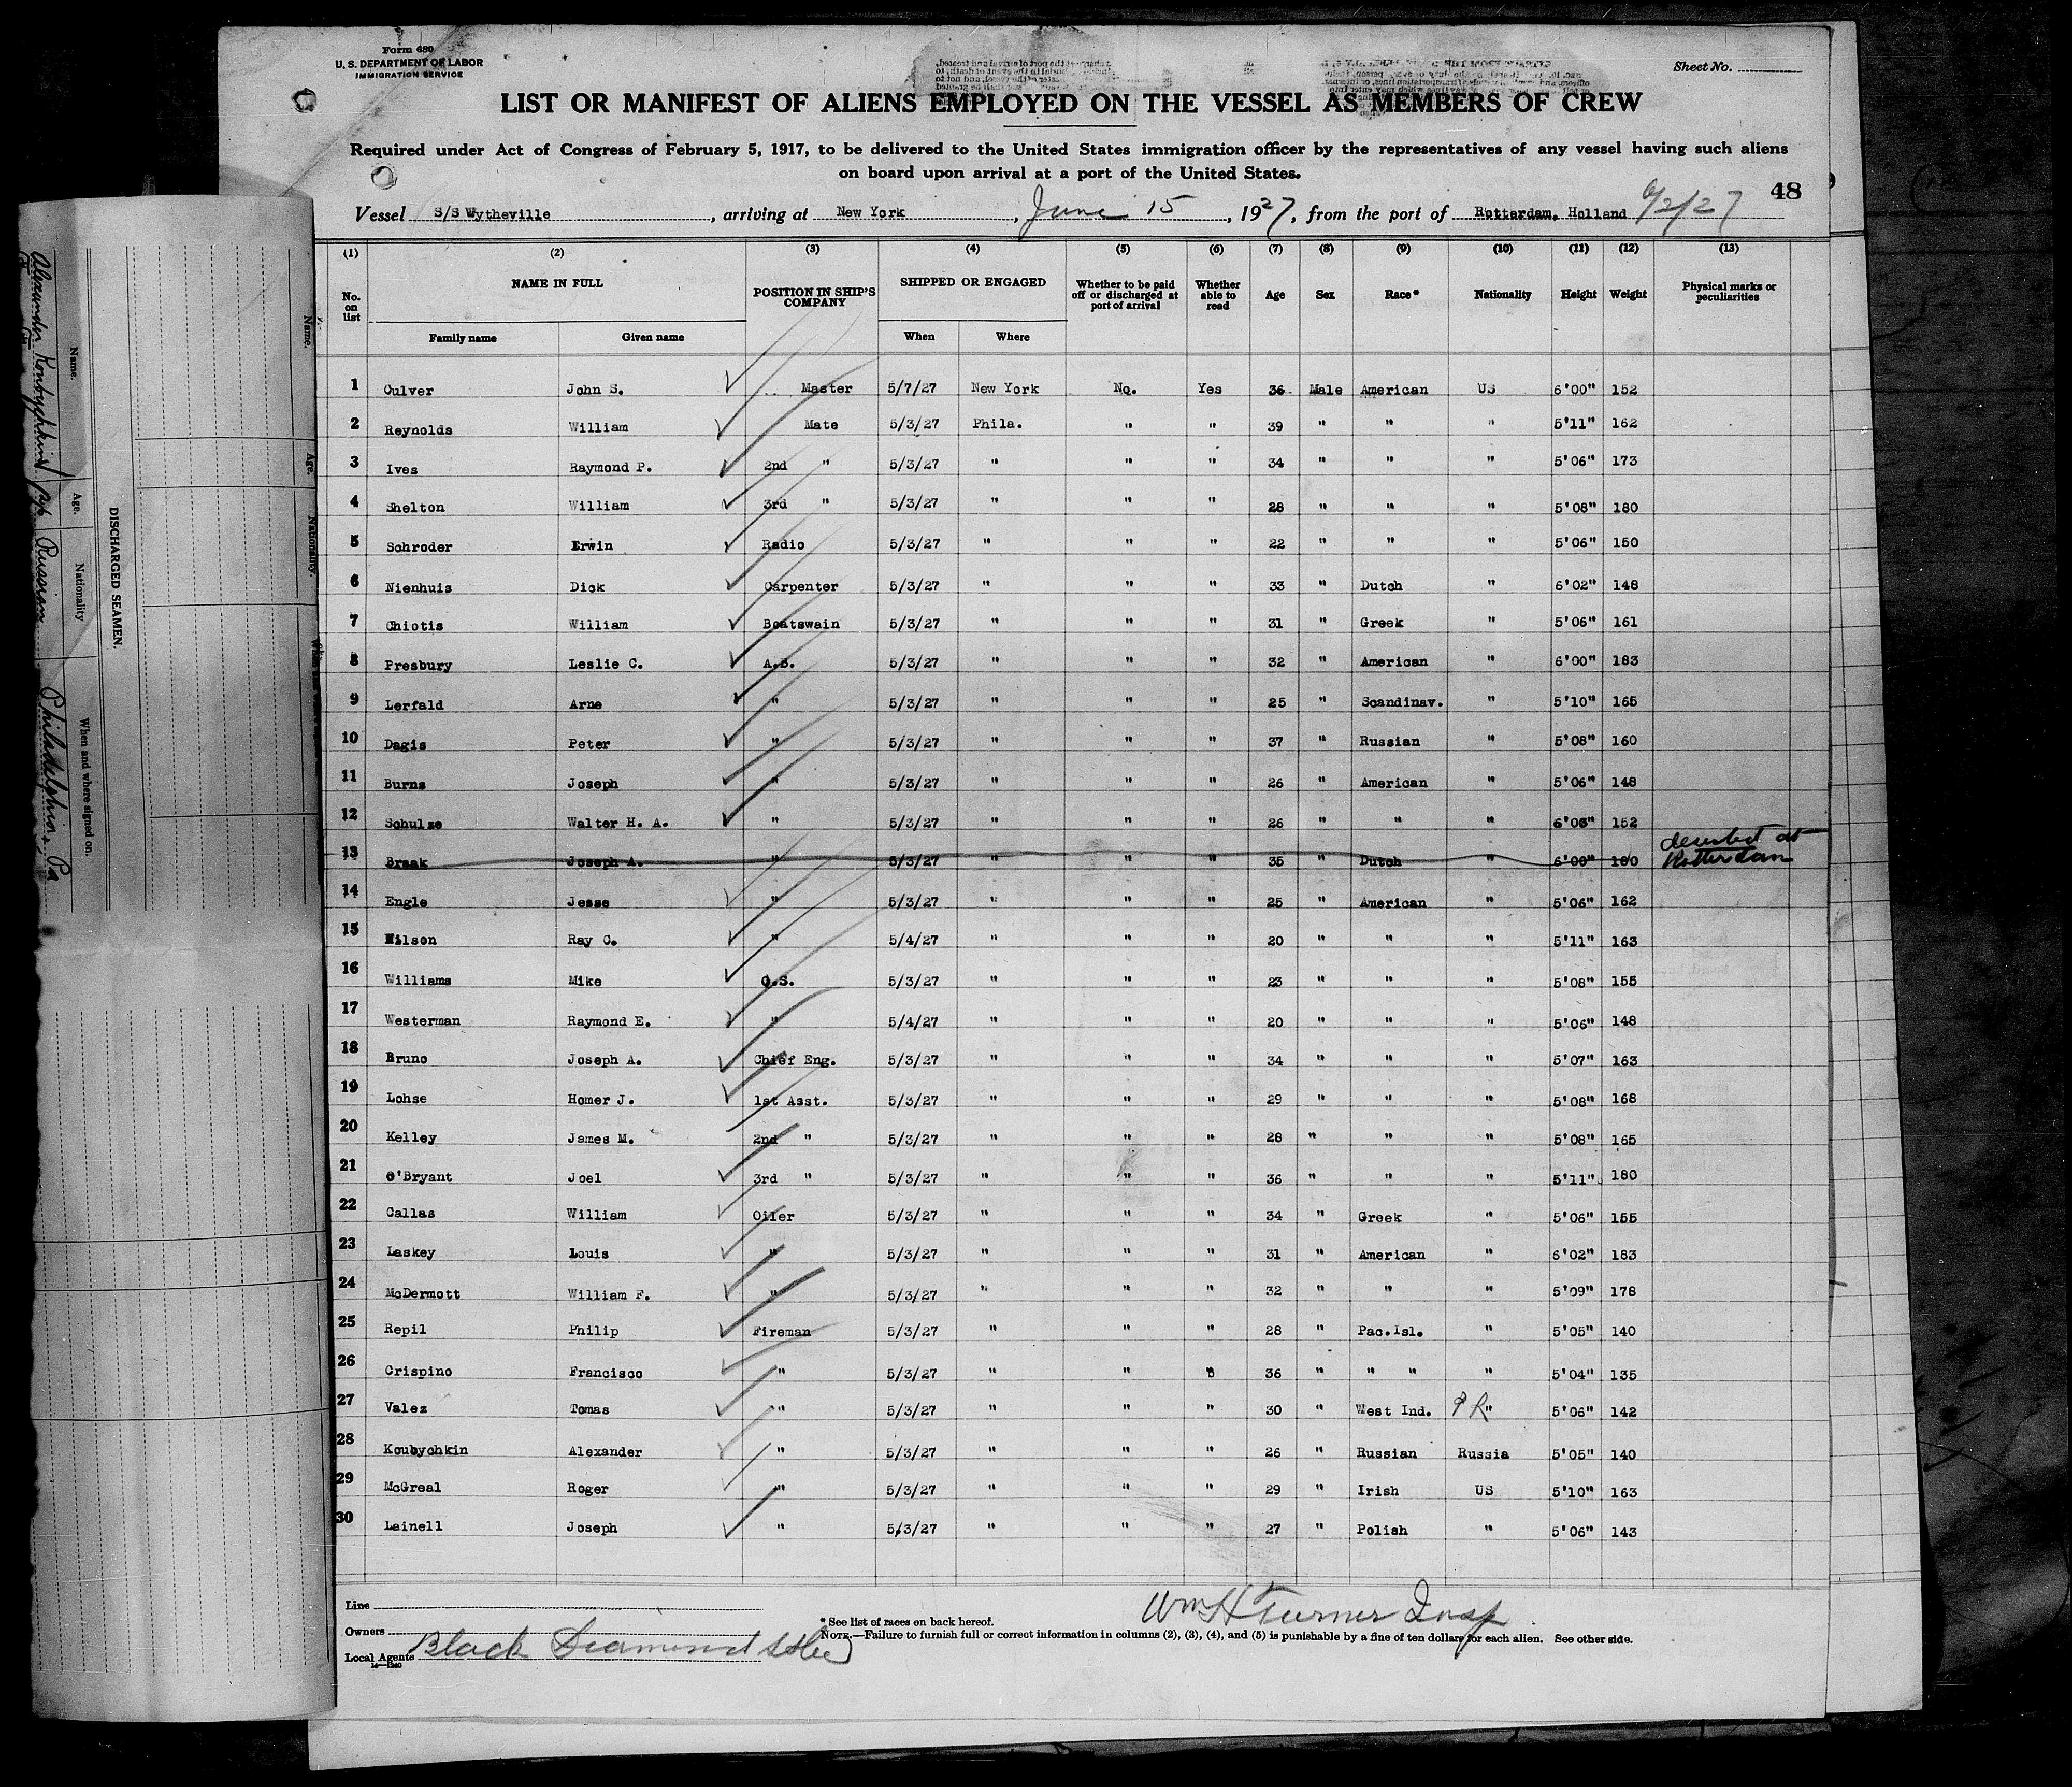 Form 680
U. S. DEPARTMENT OF LABOR
IMMIGRATION SERVICE
Sheet No.
LIST OR MANIFEST OF ALIENS EMPLOYED ON THE VESSEL AS MEMBERS OF CREW
Required under Act of Congress of February 5, 1917, to be delivered to the United States immigration officer by the representatives of any vessel having such aliens
on board upon arrival at a port of the United States.
48
Vessel S/S Wytheville, arriving at New York, June 15, 1927, from the port of Rotterdam, Holland 6/2/27
(1) (2) (3) (4) (5) (6) (7) (8) (9) (10) (11) (12) (13)
No. on list NAME IN FULL POSITION IN SHIP'S COMPANY SHIPPED OR ENGAGED Whether to be paid off or discharged at port of arrival Whether able to read Age Sex Race* Nationality Height Weight Physical marks or peculiarities
Family name Given name When Where
1 Culver John S. Master 5/7/27 New York No. Yes 36 Male American US 6'00" 152
2 Reynolds William Mate 5/3/27 Phila. " " 39 " " " 5'11" 162
3 Ives Raymond P. 2nd " 5/3/27 " " " 34 " " " 5'06" 173
4 Shelton William 3rd " 5/3/27 " " " 28 " " " 5'08" 180
5 Schroder Erwin Radio 5/3/27 " " " 22 " " " 5'06" 150
6 Nienhuis Dick Carpenter 5/3/27 " " " 33 " Dutch " 6'02" 148
7 Chiotis William Boatswain 5/3/27 " " " 31 " Greek " 5'06" 161
8 Presbury Leslie C. A.B. 5/3/27 " " " 32 " American " 6'00" 183
9 Lerfald Arne " 5/3/27 " " " 25 " Scandinav. " 5'10" 165
10 Dagis Peter " 5/3/27 " " " 37 " Russian " 5'08" 160
11 Burns Joseph " 5/3/27 " " " 26 " American " 5'06" 148
12 Schulze Walter H. A. " 5/3/27 " " " 26 " " " 6'03" 152
13 Braak Joseph A. " 5/3/27 " " " 35 " Dutch " 6'00" 180 deserted at Rotterdam
14 Engle Jesse " 5/3/27 " " " 25 " American " 5'06" 162
15 Wilson Ray C. " 5/4/27 " " " 20 " " " 5'11" 163
16 Williams Mike O.S. 5/3/27 " " " 23 " " " 5'08" 155
17 Westerman Raymond E. " 5/4/27 " " " 20 " " " 5'06" 148
18 Bruno Joseph A. Chief Eng. 5/3/27 " " " 34 " " " 5'07" 163
19 Lohse Homer J. 1st Asst. 5/3/27 " " " 29 " " " 5'08" 168
20 Kelley James M. 2nd " 5/3/27 " " " 28 " " " 5'08" 165
21 O'Bryant Joel 3rd " 5/3/27 " " " 36 " " " 5'11" 180
22 Callas William Oiler 5/3/27 " " " 34 " Greek " 5'06" 155
23 Laskey Louis " 5/3/27 " " " 31 " American " 6'02" 183
24 McDermott William F. " 5/3/27 " " " 32 " " " 5'09" 178
25 Repil Philip Fireman 5/3/27 " " " 28 " Pac.Isl. " 5'05" 140
26 Crispino Francisco " 5/3/27 " " " 36 " " " " 5'04" 135
27 Valez Tomas " 5/3/27 " " " 30 " West Ind. P R " 5'06" 142
28 Koubychkin Alexander " 5/3/27 " " " 26 " Russian Russia 5'05" 140
29 McGreal Roger " 5/3/27 " " " 29 " Irish US 5'10" 163
30 Lainell Joseph " 5/3/27 " " " 27 " Polish " 5'06" 143
Line
Owners
Local Agents Black Diamond
* See list of races on back hereof.
NOTE.—Failure to furnish full or correct information in columns (2), (3), (4), and (5) is punishable by a fine of ten dollars for each alien. See other side.
Wm H Turner Insp
DISCHARGED SEAMEN.
Name. Age. Nationality When and where signed on.
Alexander 26 Russian Philadelphia, Pa
Name. Age. Nationality.